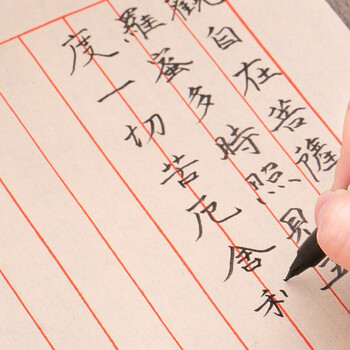 觀自在菩薩
羅蜜多時照見五
度一切苦厄舍利